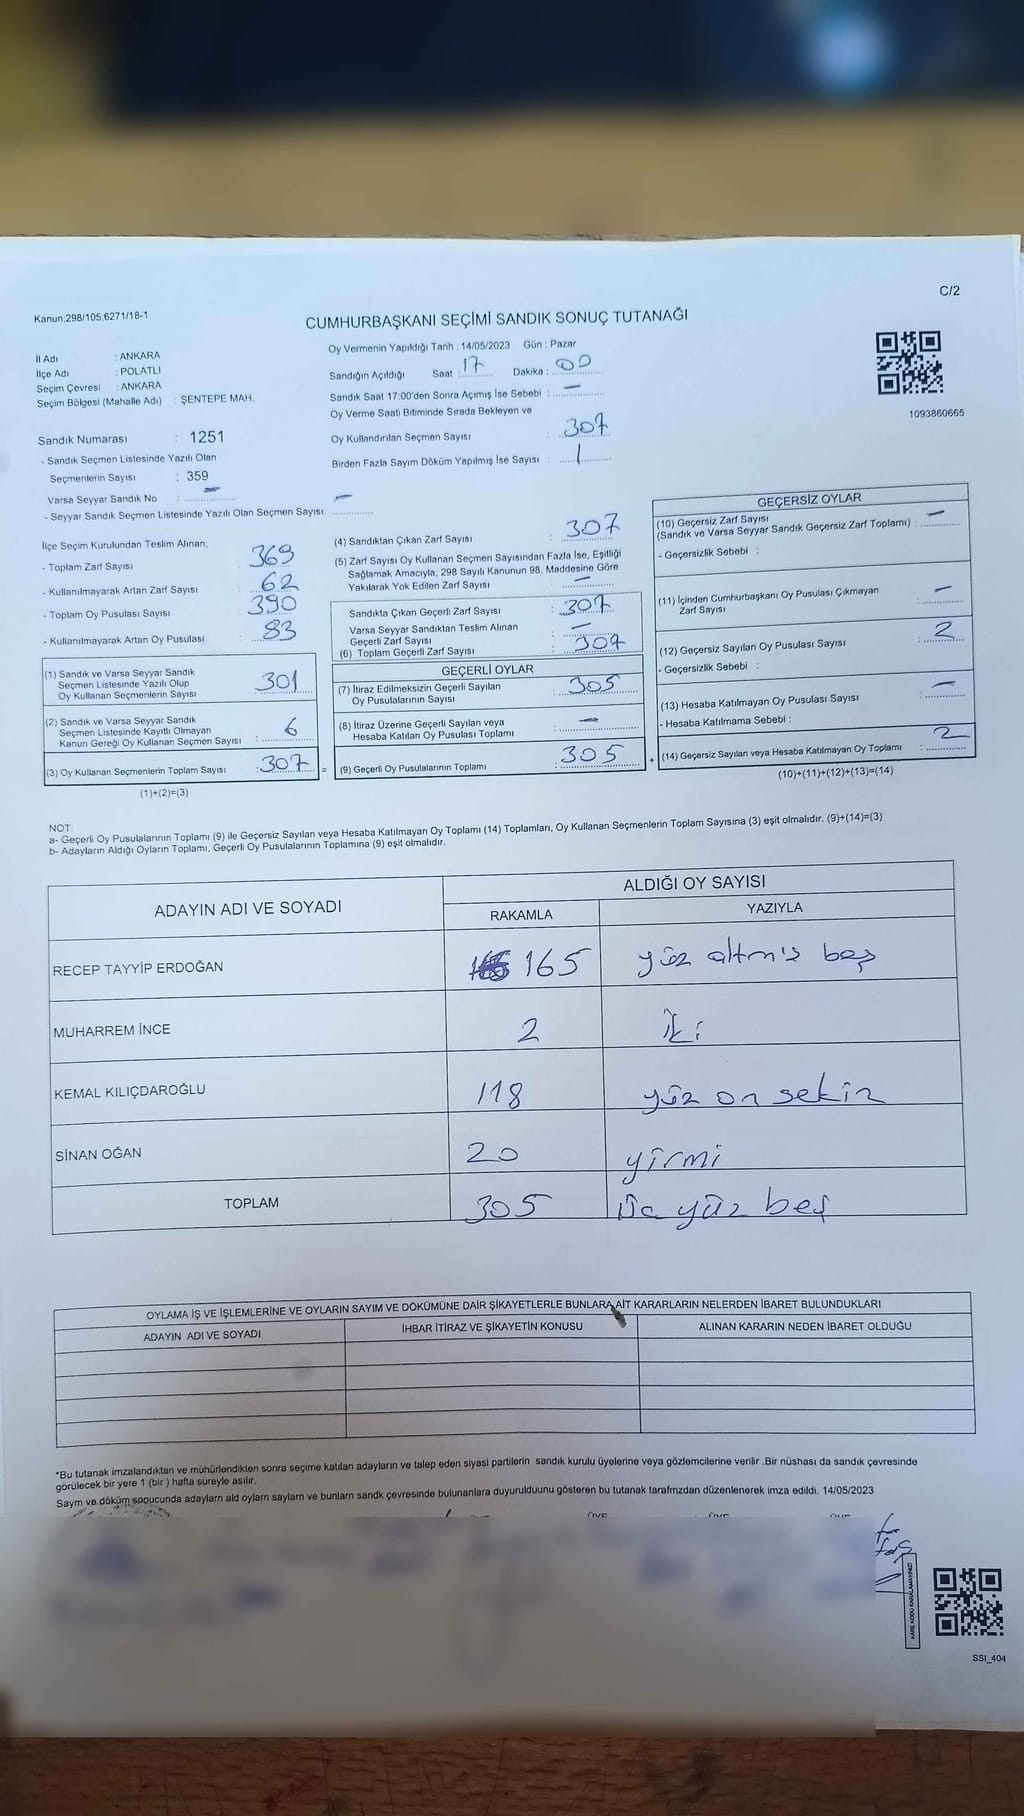 C/2
Kanun:298/105;6271/18-1
CUMHURBAŞKANI SEÇİMİ SANDIK SONUÇ TUTANAĞI
İl Adı : ANKARA
İlçe Adı : POLATLI
Seçim Çevresi : ANKARA
Seçim Bölgesi (Mahalle Adı) : ŞENTEPE MAH.
Sandık Numarası : 1251
- Sandık Seçmen Listesinde Yazılı Olan
Seçmenlerin Sayısı : 359
Varsa Seyyar Sandık No : –
- Seyyar Sandık Seçmen Listesinde Yazılı Olan Seçmen Sayısı: –
Oy Vermenin Yapıldığı Tarih : 14/05/2023 Gün : Pazar
Sandığın Açıldığı Saat : 17 Dakika : 00
Sandık Saat 17:00'den Sonra Açımış İse Sebebi : –
Oy Verme Saati Bitiminde Sırada Bekleyen ve
Oy Kullandırılan Seçmen Sayısı : 307
Birden Fazla Sayım Döküm Yapılmış İse Sayısı : 1
1093860665
İlçe Seçim Kurulundan Teslim Alınan;
- Toplam Zarf Sayısı : 369
- Kullanılmayarak Artan Zarf Sayısı : 62
- Toplam Oy Pusulası Sayısı : 390
- Kullanılmayarak Artan Oy Pusulası : 83
(1) Sandık ve Varsa Seyyar Sandık
Seçmen Listesinde Yazılı Olup
Oy Kullanan Seçmenlerin Sayısı : 301
(2) Sandık ve Varsa Seyyar Sandık
Seçmen Listesinde Kayıtlı Olmayan
Kanun Gereği Oy Kullanan Seçmen Sayısı : 6
(3) Oy Kullanan Seçmenlerin Toplam Sayısı : 307 =
(1)+(2)=(3)
(4) Sandıktan Çıkan Zarf Sayısı : 307
(5) Zarf Sayısı Oy Kullanan Seçmen Sayısından Fazla İse, Eşitliği
Sağlamak Amacıyla, 298 Sayılı Kanunun 98. Maddesine Göre
Yakılarak Yok Edilen Zarf Sayısı : –
Sandıkta Çıkan Geçerli Zarf Sayısı : 307
Varsa Seyyar Sandıktan Teslim Alınan
Geçerli Zarf Sayısı : –
(6) Toplam Geçerli Zarf Sayısı : 307
GEÇERLİ OYLAR
(7) İtiraz Edilmeksizin Geçerli Sayılan
Oy Pusulalarının Sayısı : 305
(8) İtiraz Üzerine Geçerli Sayılan veya
Hesaba Katılan Oy Pusulası Toplamı : –
(9) Geçerli Oy Pusulalarının Toplamı : 305 +
GEÇERSİZ OYLAR
(10) Geçersiz Zarf Sayısı
(Sandık ve Varsa Seyyar Sandık Geçersiz Zarf Toplamı) : –
- Geçersizlik Sebebi :
(11) İçinden Cumhurbaşkanı Oy Pusulası Çıkmayan
Zarf Sayısı : –
(12) Geçersiz Sayılan Oy Pusulası Sayısı : 2
- Geçersizlik Sebebi :
(13) Hesaba Katılmayan Oy Pusulası Sayısı : –
- Hesaba Katılmama Sebebi :
(14) Geçersiz Sayılan veya Hesaba Katılmayan Oy Toplamı : 2
(10)+(11)+(12)+(13)=(14)
NOT:
a- Geçerli Oy Pusulalarının Toplamı (9) ile Geçersiz Sayılan veya Hesaba Katılmayan Oy Toplamı (14) Toplamları, Oy Kullanan Seçmenlerin Toplam Sayısına (3) eşit olmalıdır. (9)+(14)=(3)
b- Adayların Aldığı Oyların Toplamı, Geçerli Oy Pusulalarının Toplamına (9) eşit olmalıdır.
ADAYIN ADI VE SOYADI
ALDIĞI OY SAYISI
RAKAMLA YAZIYLA
RECEP TAYYİP ERDOĞAN 165 yüz altmış beş
MUHARREM İNCE 2 İki
KEMAL KILIÇDAROĞLU 118 yüz on sekiz
SİNAN OĞAN 20 yirmi
TOPLAM 305 Üç yüz beş
OYLAMA İŞ VE İŞLEMLERİNE VE OYLARIN SAYIM VE DÖKÜMÜNE DAİR ŞİKAYETLERLE BUNLARA AİT KARARLARIN NELERDEN İBARET BULUNDUKLARI
ADAYIN ADI VE SOYADI İHBAR İTİRAZ VE ŞİKAYETİN KONUSU ALINAN KARARIN NEDEN İBARET OLDUĞU
*Bu tutanak imzalandıktan ve mühürlendikten sonra seçime katılan adayların ve talep eden siyasi partilerin sandık kurulu üyelerine veya gözlemcilerine verilir .Bir nüshası da sandık çevresinde
görülecek bir yere 1 (bir ) hafta süreyle asılır.
Sayım ve döküm sonucunda adayların ald oyların sayların ve bunların sandk çevresinde bulunanlara duyurulduunu gösteren bu tutanak tarafmzdan düzenlenerek imza edildi. 14/05/2023
ÜYE ÜYE ÜYE ÜYE
KARE KODU KARALAMAYINIZ!
SSI_404